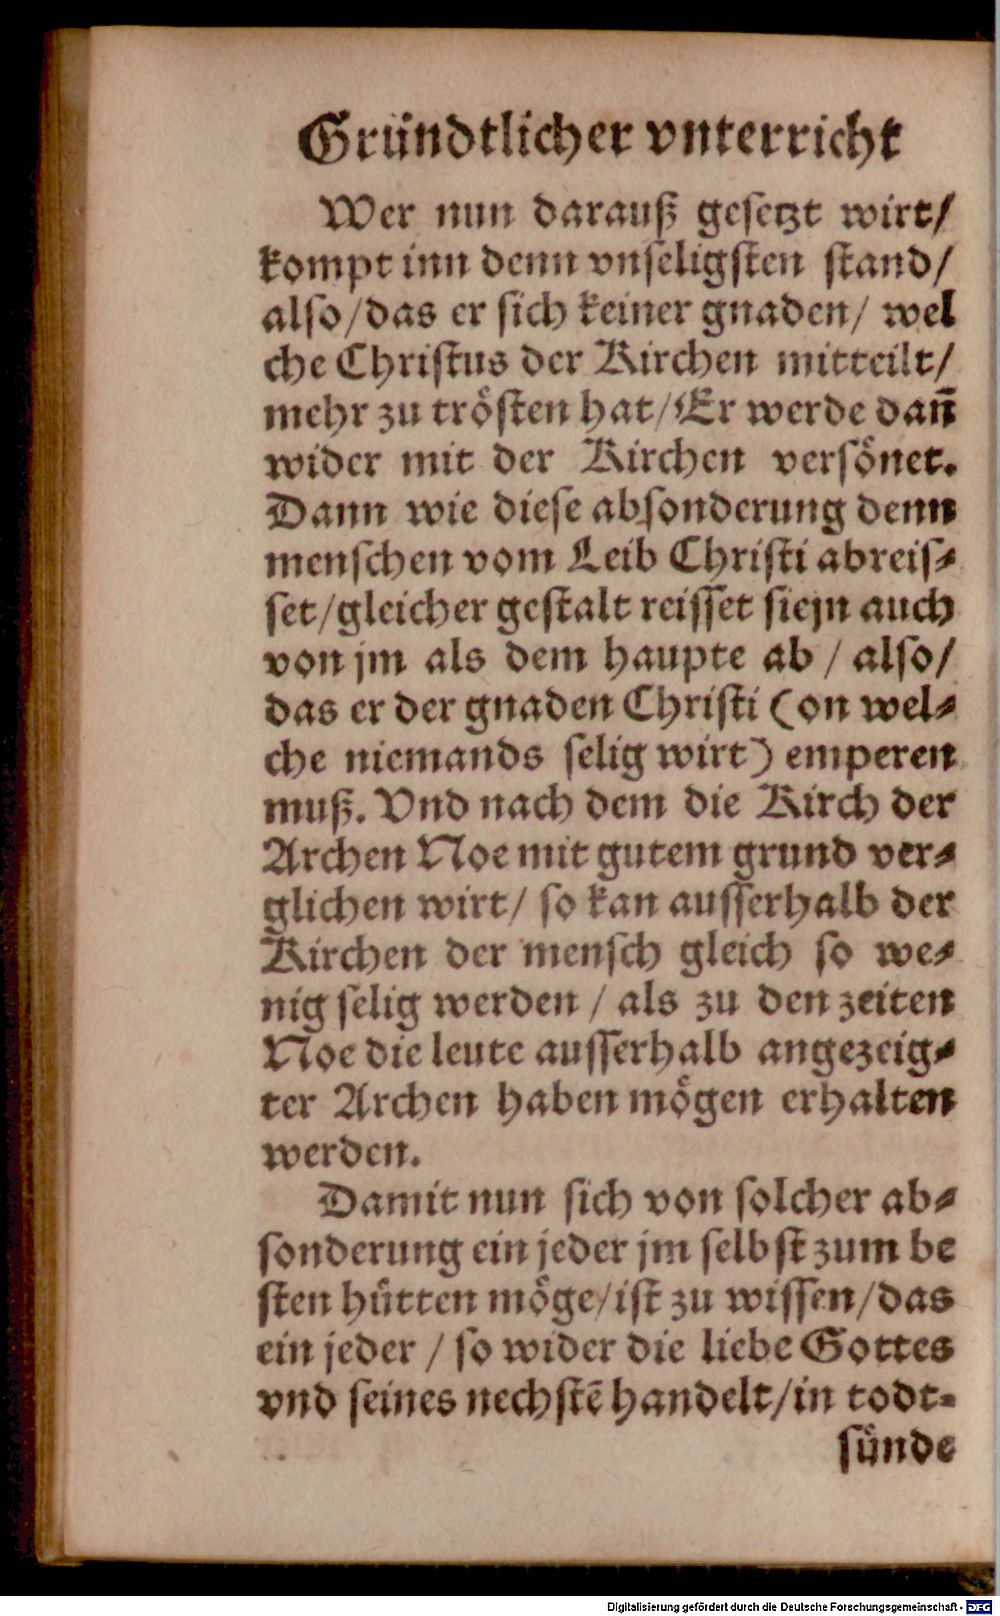 Gründtlicher vnterricht
Wer nun darauß gesetzt wirt/
kompt inn denn vnseligsten stand/
also/das er sich keiner gnaden/ wel
che Christus der Kirchen mitteilt/
mehr zu trösten hat/Er werde dañ
wider mit der Kirchen versönet.
Dann wie diese absonderung denn
menschen vom Leib Christi abreis⸗
set/gleicher gestalt reisset siejn auch
von jm als dem haupte ab / also/
das er der gnaden Christi (on wel⸗
che niemands selig wirt) emperen
muß. Vnd nach dem die Kirch der
Archen Noe mit gutem grund ver⸗
glichen wirt/ so kan ausserhalb der
Kirchen der mensch gleich so we⸗
nig selig werden / als zu den zeiten
Noe die leute ausserhalb angezeig⸗
ter Archen haben mögen erhalten
werden.
Damit nun sich von solcher ab⸗
sonderung ein jeder jm selbst zum be
sten hütten möge/ist zu wissen/das
ein jeder / so wider die liebe Gottes
vnd seines nechstē handelt/in todt⸗
sünde
Digitalisierung gefördert durch die Deutsche Forschungsgemeinschaft - DFG